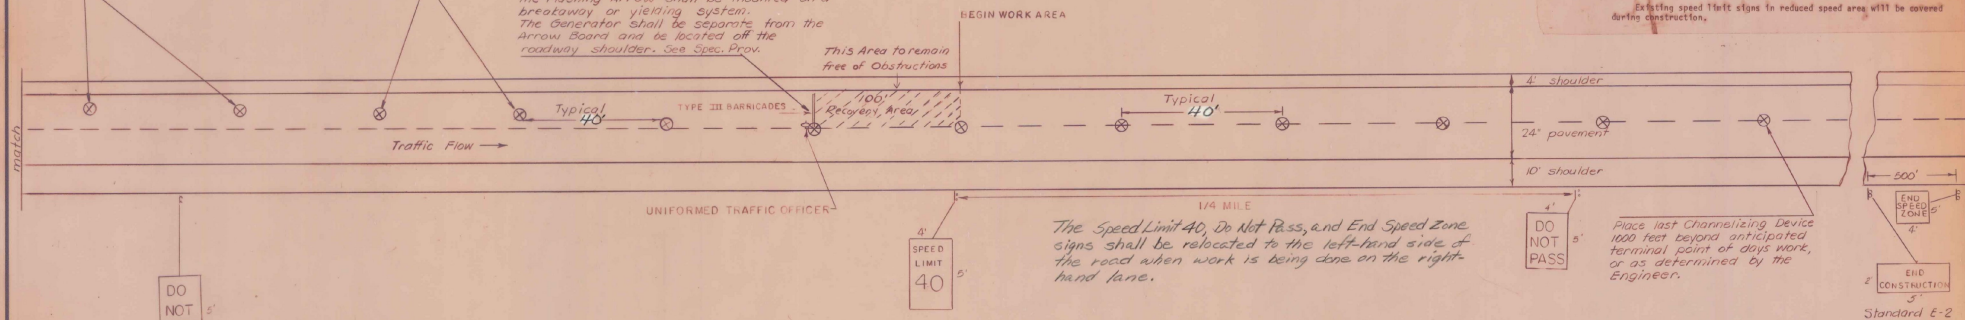 breakaway or yielding system.
The Generator shall be separate from the
Arrow Board and be located off the
roadway shoulder. See Spec. Prov.
This Area to remain
free of Obstructions
BEGIN WORK AREA
Existing speed limit signs in reduced speed area will be covered
during construction.
match
Typical
40'
TYPE III BARRICADES
100'
Recovery Area
Typical
40'
4' shoulder
24" pavement
10' shoulder
Traffic Flow
UNIFORMED TRAFFIC OFFICER
1/4 MILE
500'
DO
NOT
5'
4'
SPEED
LIMIT
40
5'
The Speed Limit 40, Do Not Pass, and End Speed Zone
signs shall be relocated to the left-hand side of
the road when work is being done on the right-
hand lane.
4'
DO
NOT
PASS
5'
Place last Channelizing Device
1000 feet beyond anticipated
terminal point of days work,
or as determined by the
Engineer.
END
SPEED
ZONE
5'
4'
2'
END
CONSTRUCTION
5'
Standard E-2